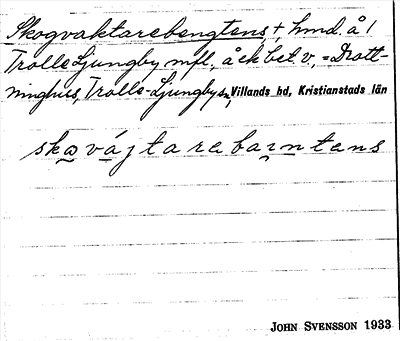 Skogvaktarebengtens + hmd. å 1
Trolle Ljungby mfl. å ek bet v, = Drott-
ninghus, Trolle-Ljungby sn, Villands hd, Kristianstads län
skọvájtarebaṇntens
JOHN SVENSSON 1933